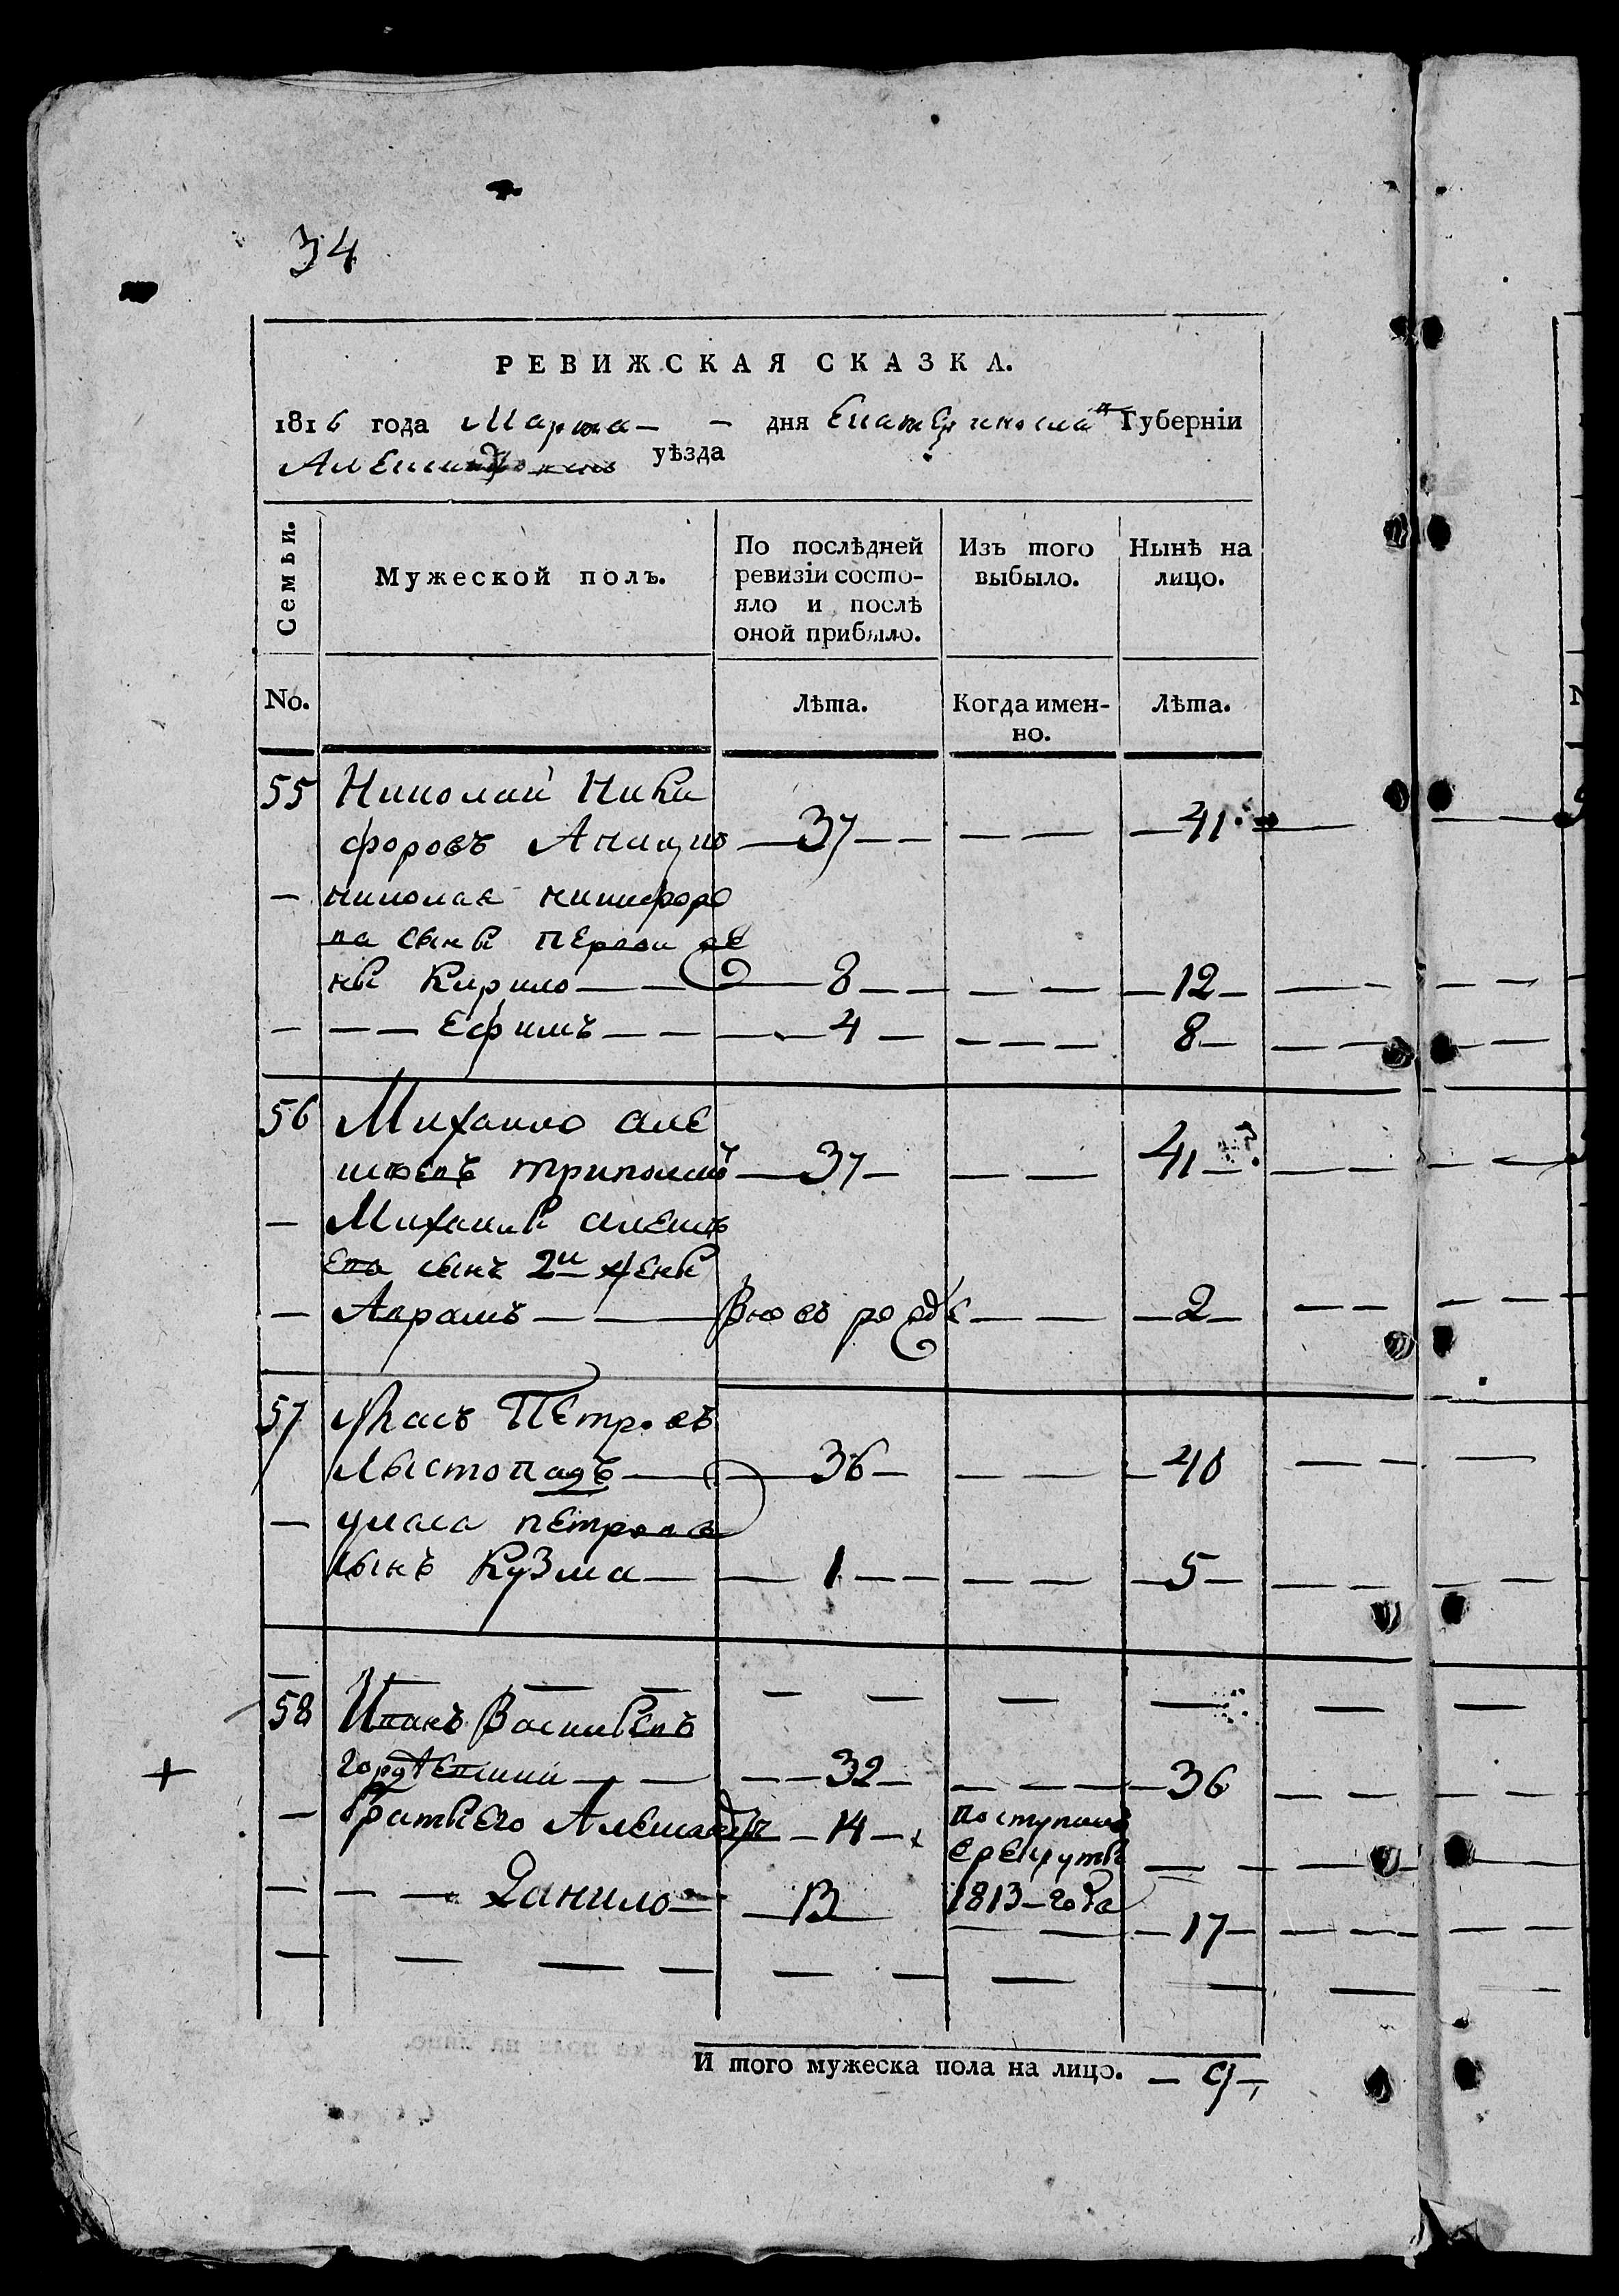 34
РЕВИЖСКАЯ СКАЗКА.
1816 года Марта — — дня Екатеринослав Губерніи
уѣзда
Семьи.
Мужеской полъ.
По послѣдней ревизіи состо-
яло и послѣ
оной прибыло.
Изъ того
выбыло.
Нынѣ на
лицо.
No.
Лѣта.
Когда имен-
но.
Лѣта.
55 Николай Ники
форовъ — 37 — — — — — 41
— николая никифоро
ва сынъ первои же
ны Кирило — — 8 — — — — — 12 —
— — — Ефимъ — — — 4 — — — — 8 —
56 Михаило Але
— 37 — — — 41 —
— Михаила
ева сынъ 2и жены
— Аврамъ — — вновь рожде — — — 2 —
57 Власъ Петровъ
Листопадъ — — 36 — — — — 40
— уласа петрова
сынъ Кузма — — 1 — — — — — 5 —
58 Иванъ Василiевъ
— — — 32 — — — — — 36
— братъ его Александръ — 14 — поступилъ
в рекруты
1813 — года
— — — Данило — — 13 — — — 17 —
И того мужеска пола на лицо. — 9 —